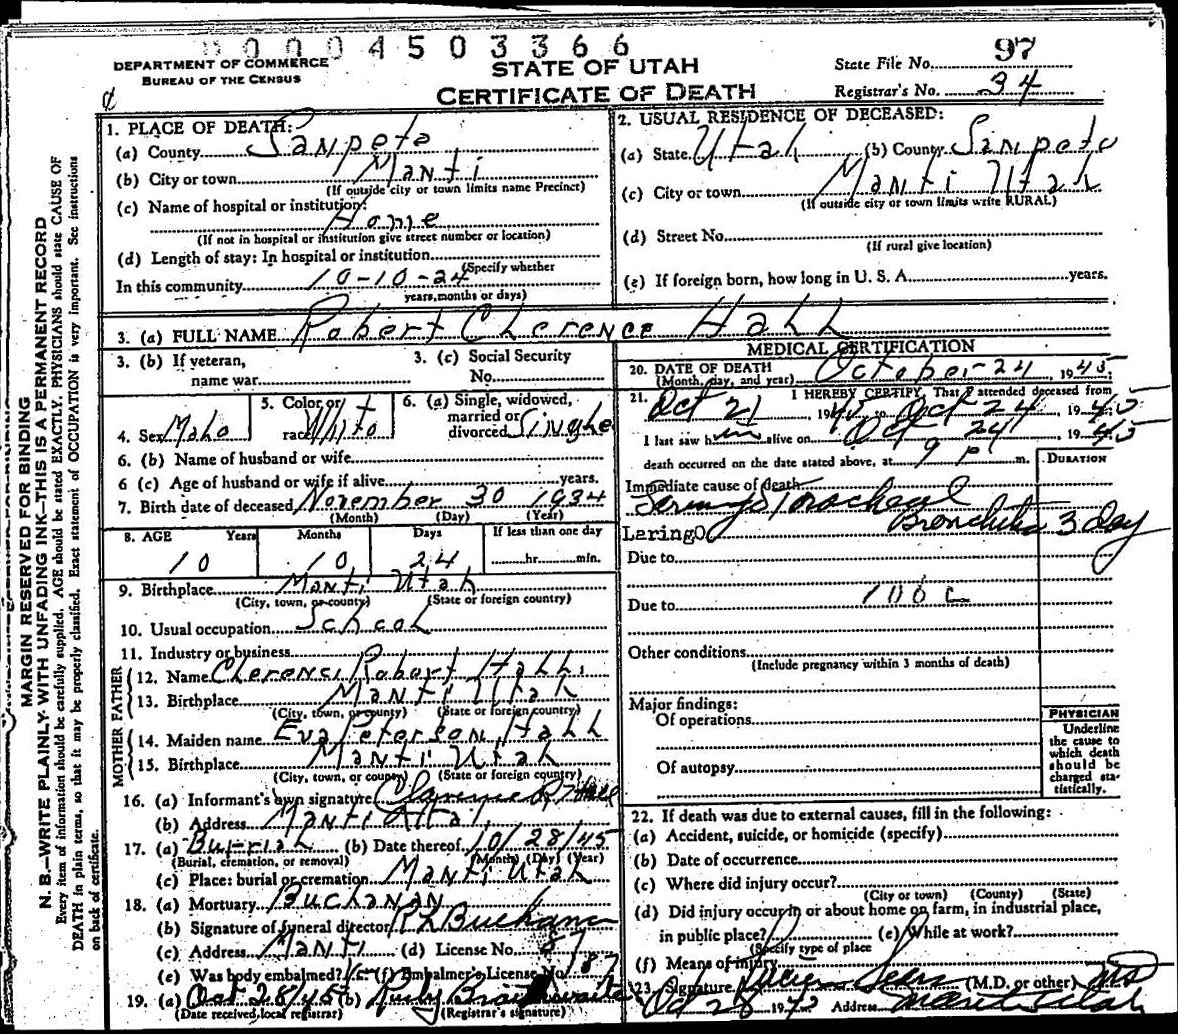 00004503366
DEPARTMENT OF COMMERCE
BUREAU OF THE CENSUS
STATE OF UTAH
CERTIFICATE OF DEATH
State File No. 97
Registrar's No. 34
MARGIN RESERVED FOR BINDING
N. B.—WRITE PLAINLY WITH UNFADING INK—THIS IS A PERMANENT RECORD
Every item of information should be carefully supplied. AGE should be stated EXACTLY. PHYSICIANS should state CAUSE OF
DEATH in plain terms, so that it may be properly classified. Exact statement of OCCUPATION is very important. See instructions
on back of certificate.
1. PLACE OF DEATH:
(a) County Sanpete
(b) City or town Manti
(If outside city or town limits name Precinct)
(c) Name of hospital or institution:
Home
(If not in hospital or institution give street number or location)
(d) Length of stay: In hospital or institution
(Specify whether
In this community 10-10-24
years, months or days)
2. USUAL RESIDENCE OF DECEASED:
(a) State Utah (b) County Sanpete
(c) City or town Manti Utah
(If outside city or town limits write RURAL)
(d) Street No.
(If rural give location)
(e) If foreign born, how long in U. S. A. years.
3. (a) FULL NAME Robert Clerence Hall
3. (b) If veteran,
name war
3. (c) Social Security
No.
4. Sex Male
5. Color or
race White
6. (a) Single, widowed,
married or
divorced Single
6. (b) Name of husband or wife
6 (c) Age of husband or wife if alive years.
7. Birth date of deceased November 30 1934
(Month) (Day) (Year)
8. AGE Years Months Days If less than one day
10 10 24 hr. min.
9. Birthplace Manti Utah
(City, town, or county) (State or foreign country)
10. Usual occupation School
11. Industry or business
FATHER
12. Name Clerence Robert Hall
13. Birthplace Manti Utah
(City, town, or county) (State or foreign country)
MOTHER
14. Maiden name Eva Peterson Hall
15. Birthplace Manti Utah
(City, town, or county) (State or foreign country)
16. (a) Informant's own signature Clarence R. Hall
(b) Address Manti Utah
17. (a) Burial (b) Date thereof 10/28/45
(Burial, cremation, or removal) (Month) (Day) (Year)
(c) Place: burial or cremation Manti Utah
18. (a) Mortuary Buchanan
(b) Signature of funeral director R L Buchanan
(c) Address Manti (d) License No. 87
(e) Was body embalmed? (f) Embalmer's License No. 187
19. (a) Oct 28/45 (b) Ruby Braithwaite
(Date received local registrar) (Registrar's signature)
MEDICAL CERTIFICATION
20. DATE OF DEATH
(Month, day, and year) October 24 1945.
21. I HEREBY CERTIFY, That I attended deceased from
Oct 21 1945 to Oct 24 1945
I last saw him alive on Oct 24 1945
death occurred on the date stated above, at 9 P m.
DURATION
Immediate cause of death
Bronchitis 3 day
LaringO
Due to
Due to 106c
Other conditions
(Include pregnancy within 3 months of death)
Major findings:
Of operations
Of autopsy
PHYSICIAN
Underline
the cause to
which death
should be
charged sta-
tistically.
22. If death was due to external causes, fill in the following:
(a) Accident, suicide, or homicide (specify)
(b) Date of occurrence
(c) Where did injury occur?
(City or town) (County) (State)
(d) Did injury occur in or about home on farm, in industrial place,
in public place? (e) While at work?
(Specify type of place
(f) Means of injury
23. Signature Sears (M.D. or other) MD
Oct 28 19 Address Manti Utah